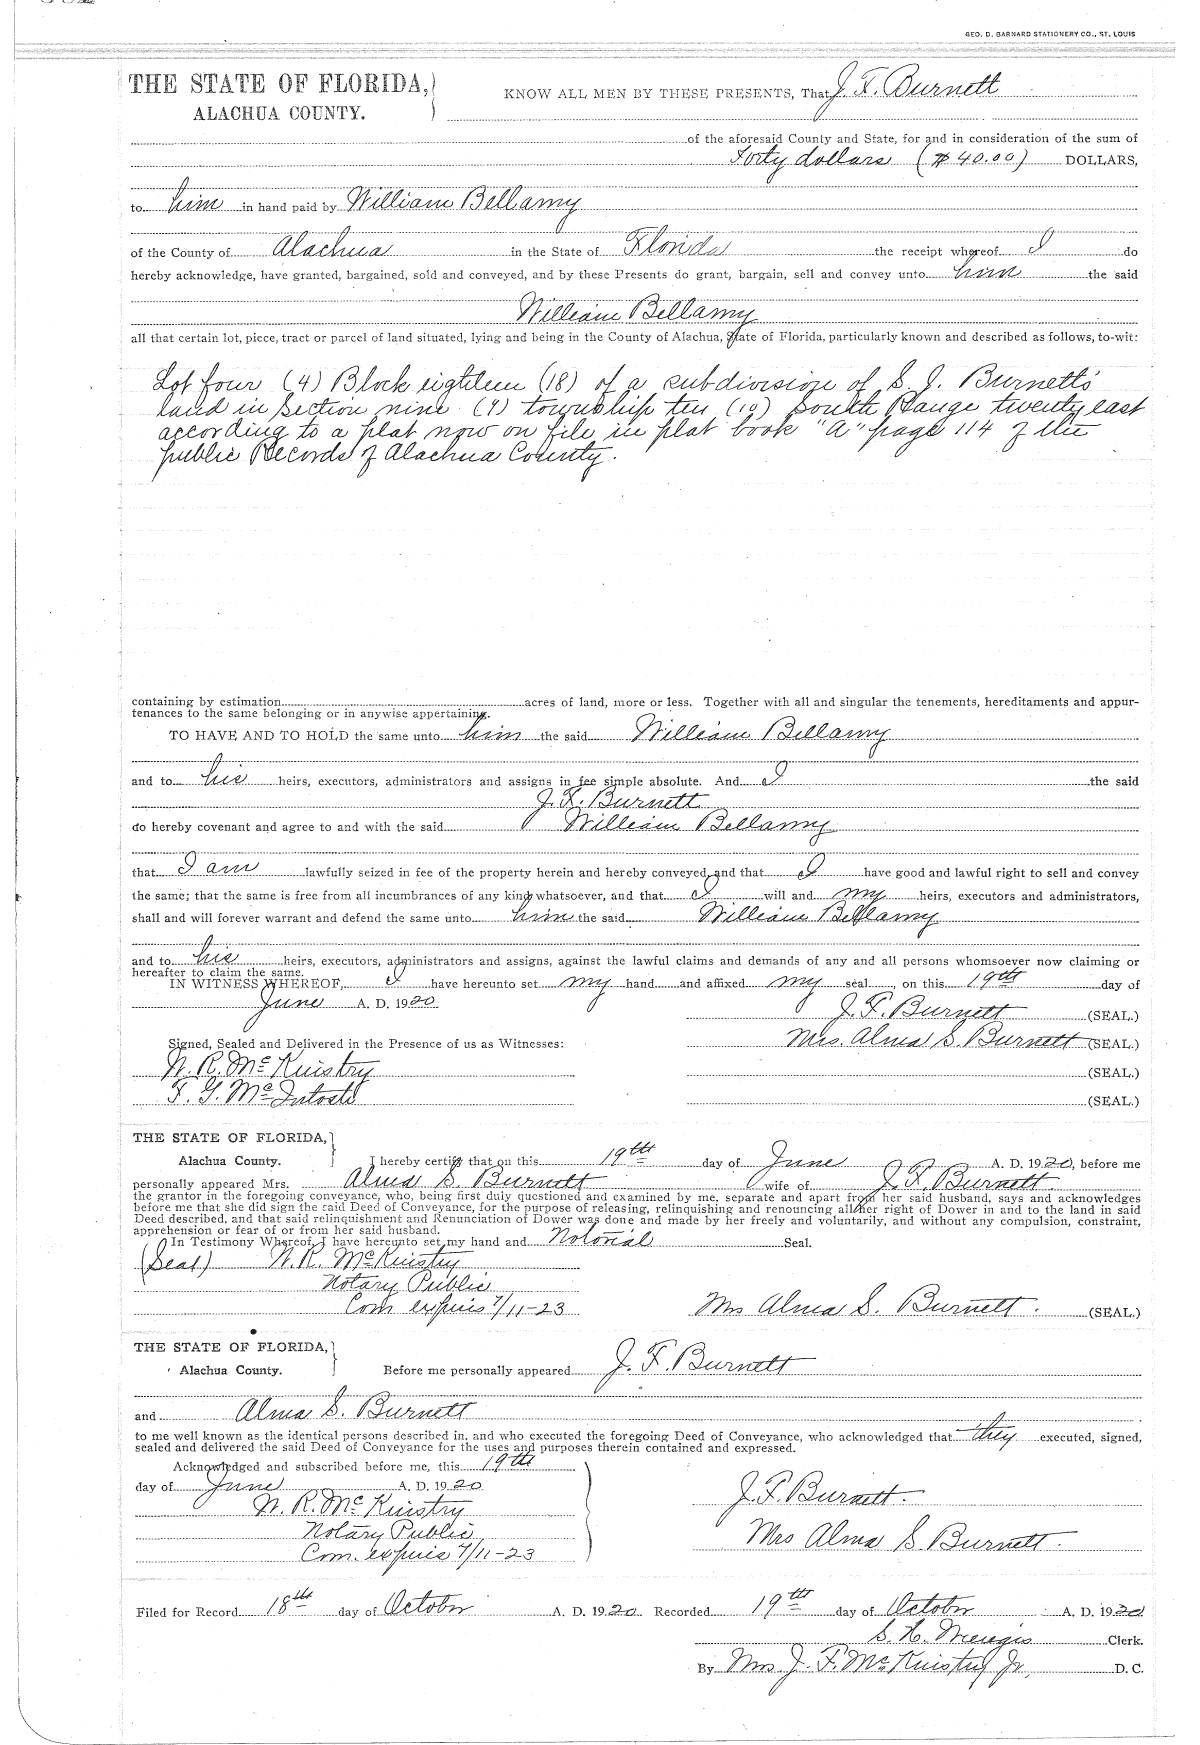 GEO. D. BARNARD STATIONERY CO., ST. LOUIS
THE STATE OF FLORIDA,
ALACHUA COUNTY.
KNOW ALL MEN BY THESE PRESENTS, That J. F. Burnett
of the aforesaid County and State, for and in consideration of the sum of
Forty dollars ($40.00) DOLLARS,
to him in hand paid by William Bellamy
of the County of Alachua in the State of Florida the receipt whereof I do
hereby acknowledge, have granted, bargained, sold and conveyed, and by these Presents do grant, bargain, sell and convey unto him the said
William Bellamy
all that certain lot, piece, tract or parcel of land situated, lying and being in the County of Alachua, State of Florida, particularly known and described as follows, to-wit:
Lot four (4) Block eighteen (18) of a subdivision of S. J. Burnetts
land in Section nine (9) township ten (10) South Range twenty east
according to a plat now on file in plat book "A" page 114 of the
public Records of Alachua County.
containing by estimation acres of land, more or less. Together with all and singular the tenements, hereditaments and appur-
tenances to the same belonging or in anywise appertaining.
TO HAVE AND TO HOLD the same unto him the said William Bellamy
and to his heirs, executors, administrators and assigns in fee simple absolute. And I the said
J. F. Burnett
do hereby covenant and agree to and with the said William Bellamy
that I am lawfully seized in fee of the property herein and hereby conveyed, and that I have good and lawful right to sell and convey
the same; that the same is free from all incumbrances of any kind whatsoever, and that I will and my heirs, executors and administrators,
shall and will forever warrant and defend the same unto him the said William Bellamy
and to his heirs, executors, administrators and assigns, against the lawful claims and demands of any and all persons whomsoever now claiming or
hereafter to claim the same.
IN WITNESS WHEREOF, I have hereunto set my hand and affixed my seal , on this 19th day of
June A. D. 1920
J. F. Burnett (SEAL.)
Mrs. Alma S. Burnett (SEAL.)
Signed, Sealed and Delivered in the Presence of us as Witnesses:
W. R. McKinstry (SEAL.)
F. G. McIntosh (SEAL.)
THE STATE OF FLORIDA,
Alachua County. I hereby certify that on this 19th day of June A. D. 1920, before me
personally appeared Mrs. Alma S. Burnett wife of J. F. Burnett
the grantor in the foregoing conveyance, who, being first duly questioned and examined by me, separate and apart from her said husband, says and acknowledges
before me that she did sign the said Deed of Conveyance, for the purpose of releasing, relinquishing and renouncing all her right of Dower in and to the land in said
Deed described, and that said relinquishment and Renunciation of Dower was done and made by her freely and voluntarily, and without any compulsion, constraint,
apprehension or fear of or from her said husband.
In Testimony Whereof, I have hereunto set my hand and Notorial Seal.
(Seal) W. R. McKinstry
Notary Public
Com expires 7/11-23 Mrs Alma S. Burnett. (SEAL.)
THE STATE OF FLORIDA,
Alachua County. Before me personally appeared J. F. Burnett
and Alma S. Burnett
to me well known as the identical persons described in, and who executed the foregoing Deed of Conveyance, who acknowledged that they executed, signed,
sealed and delivered the said Deed of Conveyance for the uses and purposes therein contained and expressed.
Acknowledged and subscribed before me, this 19th
day of June A. D. 1920
J. F. Burnett.
W. R. McKinstry
Notary Public
Mrs Alma S. Burnett.
Com. expires 7/11-23
Filed for Record 18th day of October A. D. 1920 Recorded 19th day of October A. D. 1920
S. H. Clerk.
By Mrs. J. F. McKinstry Jr. D. C.